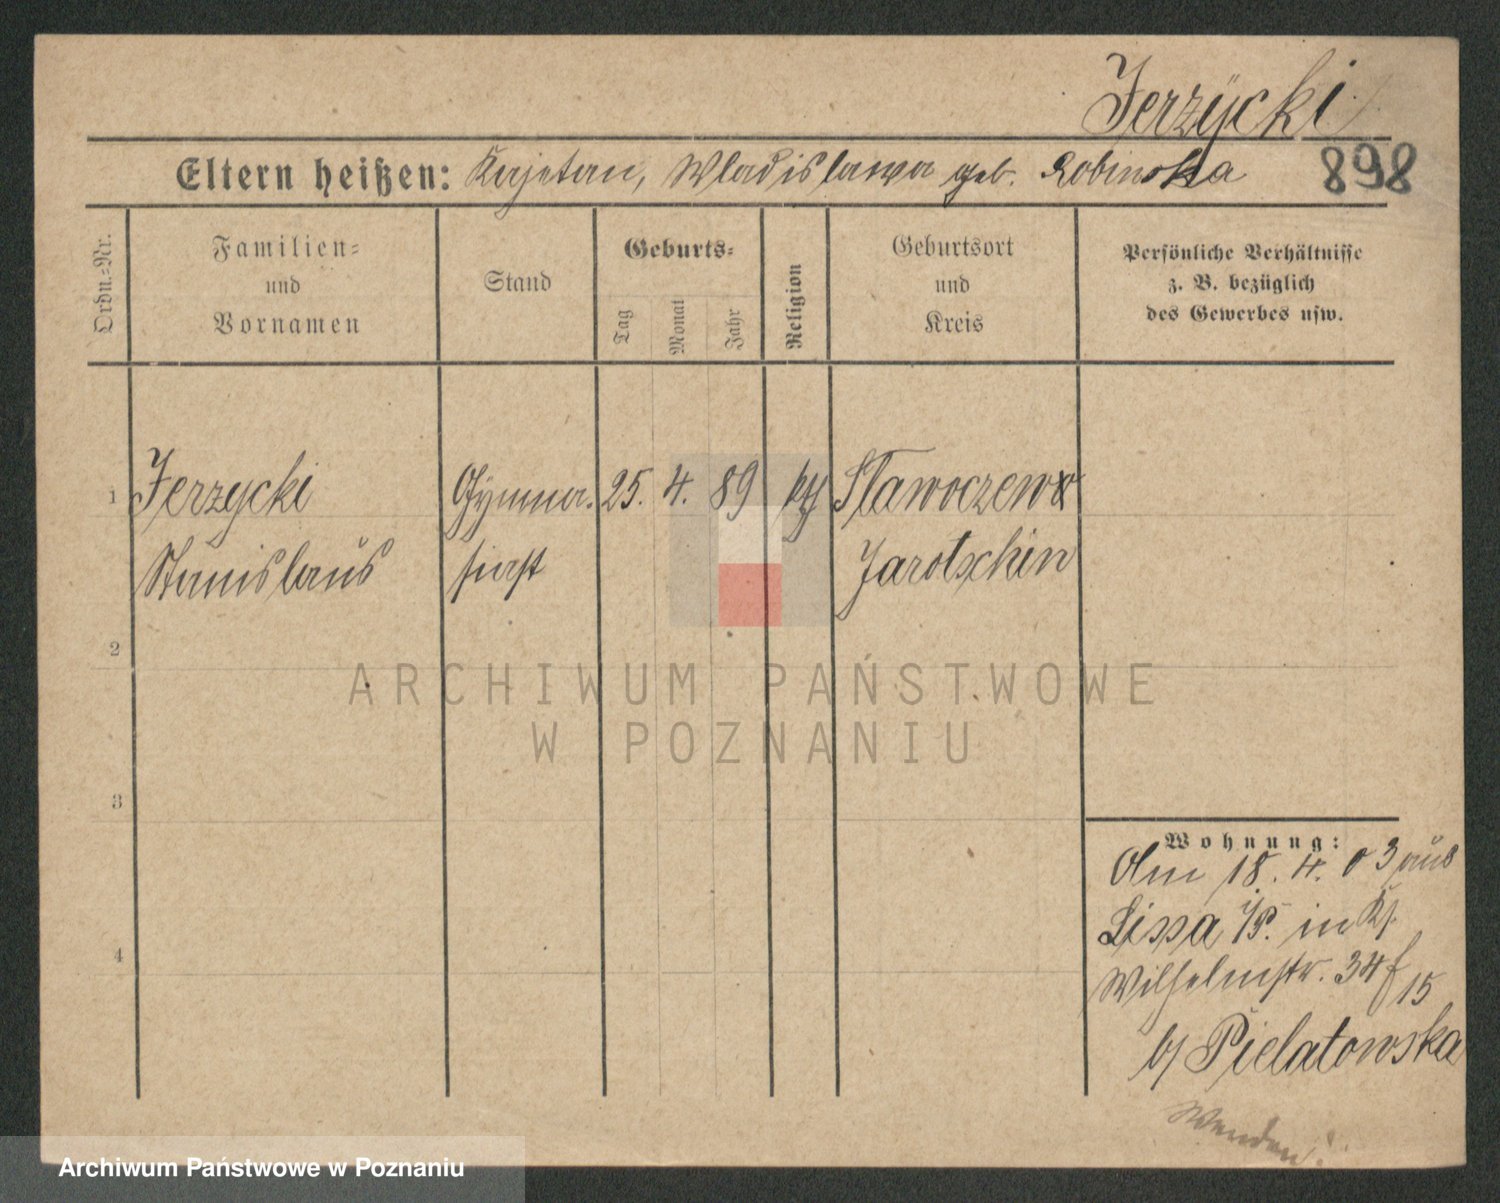 Jerzycki
898
Eltern heißen: Kajetan, Wladislawa geb. Robinska
Ordn.-Nr.
Familien-
und
Vornamen
Stand
Geburts-
Tag
Monat
Jahr
Religion
Geburtsort
und
Kreis
Persönliche Verhältnisse
z. B. bezüglich
des Gewerbes usw.
1 Jerzycki Gymna- 25. 4. 89 kth
Stanislaus siast Jarotschin
2
3
4
ARCHIWUM PAŃSTWOWE
W POZNANIU
Wohnung:
Am 18. 4. 03 aus
Lissa i/P. in
Wilhelmstr. 34 f 15
b/ Pielatowska
Wenden!
Archiwum Państwowe w Poznaniu